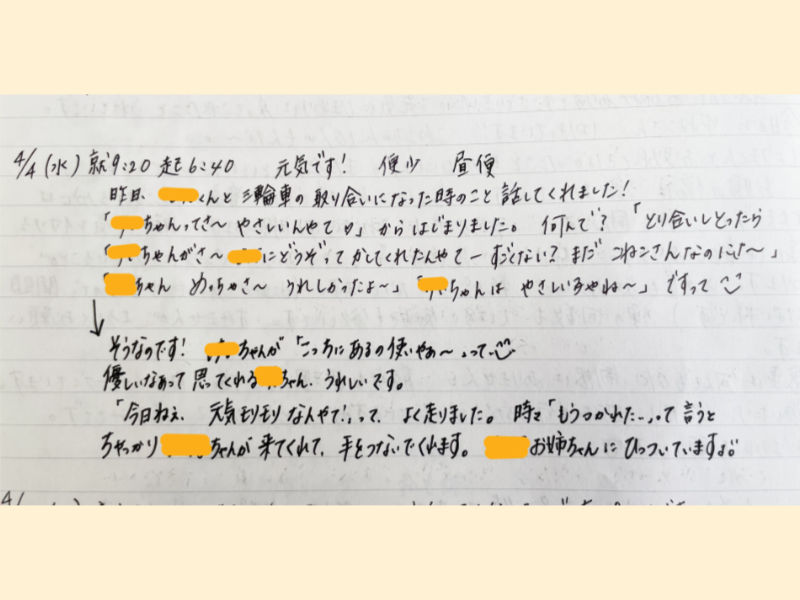 4/4(水) 就9:20 起6:40 元気です! 便少 昼便
昨日、くんと三輪車の取り合いになった時のこと話してくれました!
「ちゃんってさ〜 やさしいんやて♡」からはじまりました。 何んで? 「とり合いしとったら
「ちゃんがさ〜 にどうぞってかしてくれたんやて ー すごくない? まだ こねこさんなのにさ〜」
「ちゃん めっちゃさ〜 うれしかったよ〜」「ちゃんは やさしいちゃね〜」ですって
↓
そうなのです! ちゃんが「こっちにあるの使いやぁ〜」って
優しいなあって思てくれるちゃん、うれしいです。
「今日ねぇ、元気モリモリなんやで!」って、よく走りました。 時々「もうつかれた…」って言うと
ちゃっかりちゃんが来てくれて、手をつないでくれます。 お姉ちゃんにひっついていますよ
4/